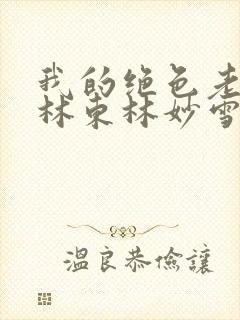 我的绝色老
林东林妙雪
温良恭俭讓